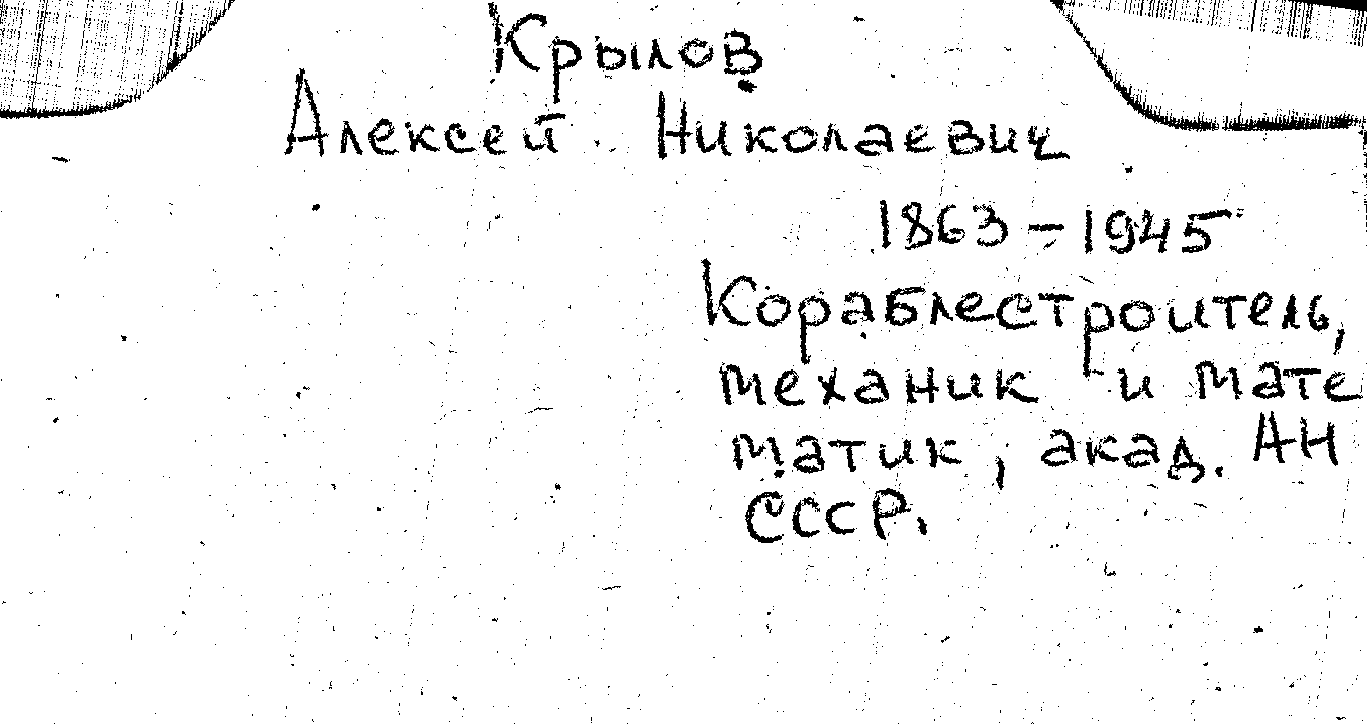 Крылов
Алексей Николаевич
1863 – 1945
Кораблестроитель,
механик и мате
матик, акад. АН
СССР.